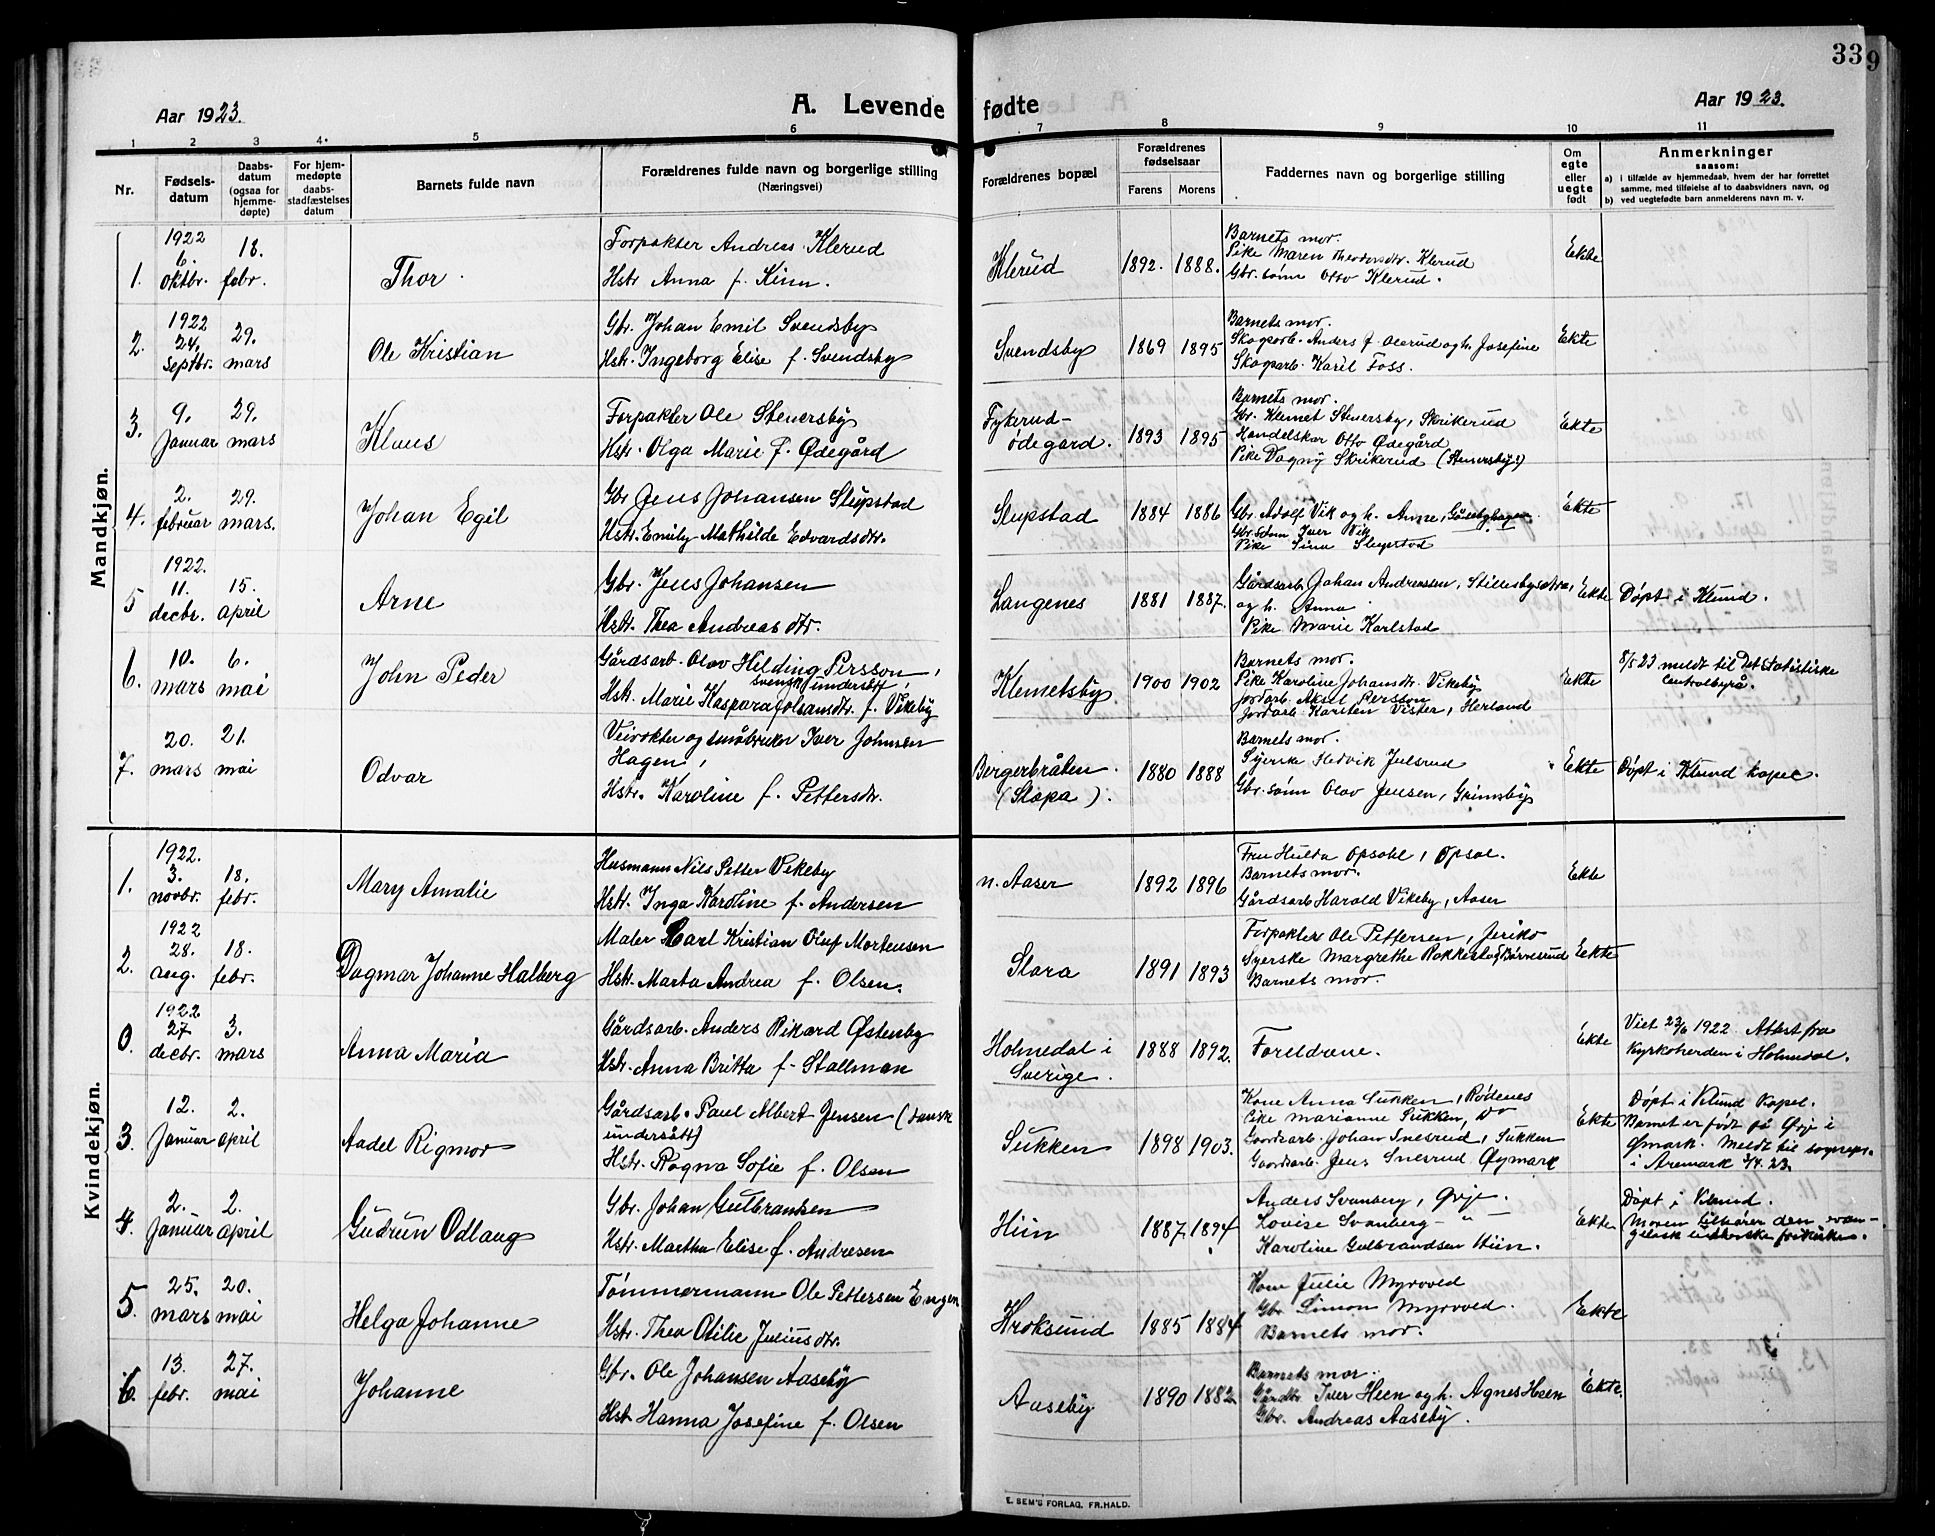 33
9
Aar 1923.
A. Levende
fødte
Aar 1923.
1 2 3 4. 5 6 7 8 9 10 11
Nr.
Fødsels-
datum
Daabs-
datum
(ogsaa for
hjemme-
døpte)
For hjem-
medøpte
daabs-
stadfæstelses
datum
Barnets fulde navn
Forældrenes fulde navn og borgerlige stilling
(Næringsvei)
Forældrenes bopæl
Forældrenes
fødselsaar
Farens
Morens
Faddernes navn og borgerlige stilling
Om
egte
eller
uegte
født
Anmerkninger
saasom:
a) i tilfælde av hjemmedaab, hvem der har forrettet
samme, med tilføielse af to daabsvidners navn, og
b) ved uegtefødte barn anmelderens navn m. v.
Mandkjøn.
1.
1922
6.
oktbr.
18.
febr.
Thor.
Forpakter Andreas Klerud
Hstr. Anna f. Kinn.
Klerud
1892. 1888.
Barnets mor.
Pike Maren Theodorsdtr. Klerud
Gbr. sønn Otto Klerud.
Ekte
2.
1922
24.
Septbr.
29.
mars
Ole Kristian
Gbr. Johan Emil Svendsby
Hstr. Ingeborg Elise f. Svendsby
Svendsby
1869 1895
Barnets mor.
Skogarb. Anders J. Olerud og h. Josefine
Skogarb. Karil Foss.
Ekte
3.
9.
Januar
29.
mars
Klaus
Forpakter Ole Stenersby
Hstr. Olga Marie f. Ødegård
Fykerud-
ødegård.
1893 1895
Barnets mor.
Gbr. Klemet Stenersby, Skrikerud
Handelskar Otto Ødegård
Pike Dagny Skrikerud (Stenersby?)
Ekte
4.
2.
februar
29.
mars.
Johan Egil
Gbr Jens Johansen Slupstad
Hstr. Emily Mathilde Edvardsdtr.
Slupstad
1884 1886
Gbr. Adolf Vik og h. Anne,
Gbr. sønn Iver Vik
Pike Sina Slupstad
Ekte
5
1922.
11.
decbr.
15.
april
Arne
Gbr. Jens Johansen
Hstr. Thea Andreasdtr.
Langenes
1881 1887.
Gårdsarb. Johan Andreassen,
og h. Anna
Pike Marie Karlstad
Ekte
Døpt i Klund.
6.
10.
mars
6.
mai
John Peder
Gårdsarb. Olav Hilding Persson,
svensk undersått,
Hstr. Marie Kaspara Johansdtr. f. Vikeby
Klemetsby
1900 1902
Barnets mor.
Pike Karoline Johansdtr. Vikeby
Jordarb. Aksel Persson
Jordarb. Karsten Vister, Herland
Ekte
8/5 23 meldt til Det Statistiske
Centralbyrå.
7.
20.
mars
21.
mai
Odvar
Veivokter og småbruker Iver Johnsen
Hagen,
Hstr. Karoline f. Pettersdtr.
Bergerbråten.
(Slopa).
1880 1888
Barnets mor.
Syerske Hedvik Julsrud
Gbr. sønn Olav Jensen, Grimsby
Ekte
Døpt i Klund kapel.
Kvindekjøn.
1.
1922.
3.
novbr.
18.
febr.
Mary Amalie
Husmann Nils Petter Vikeby
Hstr. Inga Karoline f. Andersen
n. Aaser
1892 1896
Fru Hulda Opsahl, Opsal.
Barnets mor.
Gårdsarb Harald Vikeby, Aaser
Ekte
2.
1922
28.
aug.
18.
febr.
Dagmar Johanne Halberg
Maler Carl Kristian Oluf Mortensen
Hstr. Marta Andrea f. Olsen.
Slora
1891 1893
Forpakter Ole Pettersen, Jeriko
Syerske Margrethe
Barnets mor.
Ekte
0.
1922
27
decbr.
3.
mars
Anna Maria
Gårdsarb. Anders Rikard Østenby
Hstr. Anna Britta f. Stallman
Holmedal i
Sverige.
1888 1892.
Foreldrene.
Ekte
Viet 23/6 1922. Attest fra
Kyrkoherden i Holmedal.
3
12.
Januar
2.
april
Aadel Rigmor
Gårdsarb. Paul Albert Jensen (dansk
undersått)
Hstr. Ragna Sofie f. Olsen
Sukken
1898 1903.
Kone Anna Sukken, Rødenes
Pike Marianne Sukken, Do
Gaardsarb. Johan Snesrud, Sukken
Gaardsarb. Jens Snesrud Øymark
Ekte
Døpt i Klund Kapel.
Barnet er født på Ørje i
Øymark. Meldt til sognepr.
i Aremark 3/4.23.
4.
2.
Januar
2.
april
Gudrun Odlaug
Gbr. Johan Gulbransen
Hstr. Martha Elise f. Andresen
Hiin
1887 1894
Anders Svanberg, Ørje.
Lovise Svanberg - " -
Karoline Gulbrandsen Hiin.
Ekte
Døpt i Klund.
Moren tilhører den evan-
gelisk lutherske frikirke.
5.
25.
mars
20.
mai
Helga Johanne
Tømmermann Ole Pettersen Engen
Hstr. Thea Otilie Juliusdtr.
Kroksund
1885 1884
Kone Julie Myrvold
Gbr. Simon Myrvold.
Barnets mor.
Ekte
6.
13.
febr.
27.
mai
Johanne
Gbr. Ole Johansen Aaseby
Hstr. Hanna Josefine f. Olsen
Aaseby
1890 1882.
Barnets mor.
Gårdbr. Iver Heen og h. Agnes Heen
Gbr. Andreas Aaseby.
Ekte.
E. SEM'S FORLAG, FR.HALD.